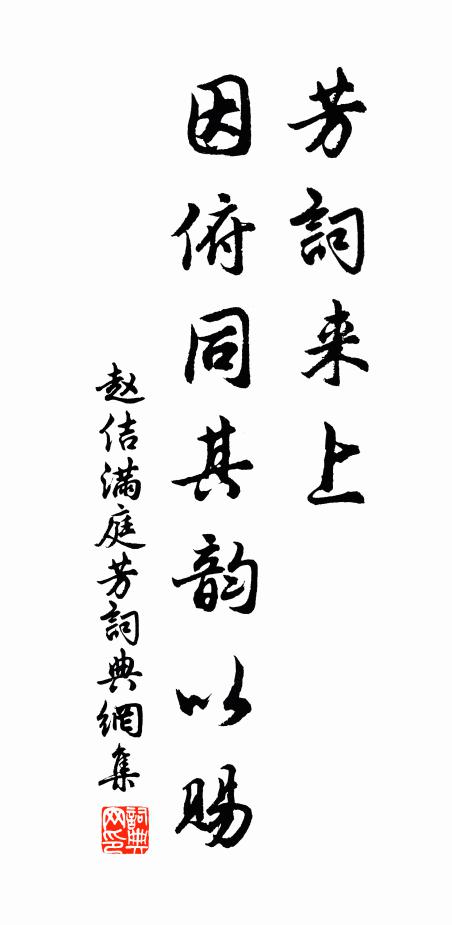 芳詞来上
因俯同其韵以賜
赵佶满庭芳詞典網集
詞典网印